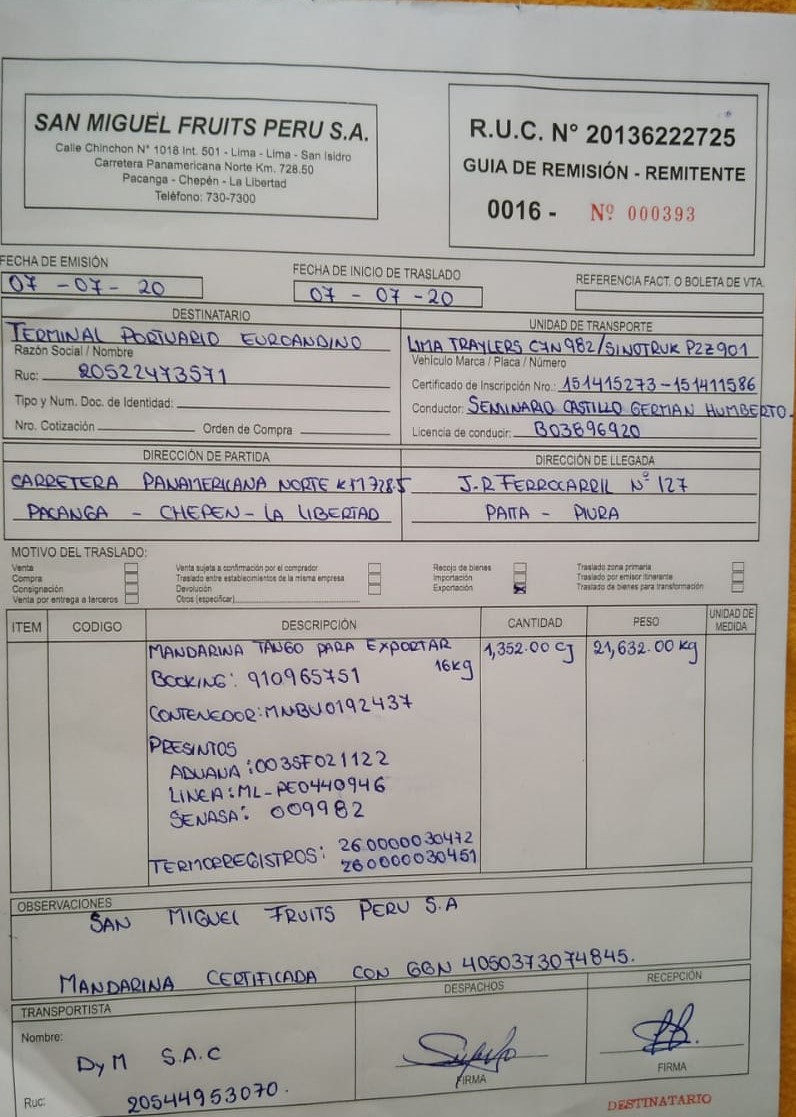 SAN MIGUEL FRUITS PERU S.A.
Calle Chinchon N° 1018 Int. 501 - Lima - Lima - San Isidro
Carretera Panamericana Norte Km. 728.50
Pacanga - Chepén - La Libertad
Teléfono: 730-7300
R.U.C. N° 20136222725
GUIA DE REMISIÓN - REMITENTE
0016 - Nº 000393
FECHA DE EMISIÓN
07 - 07 - 20
FECHA DE INICIO DE TRASLADO
07 - 07 - 20
REFERENCIA FACT. O BOLETA DE VTA.
DESTINATARIO
TERMINAL PORTUARIO EUROANDINO
Razón Social / Nombre
Ruc: 20522473571
Tipo y Num. Doc. de Identidad:
Nro. Cotización Orden de Compra
UNIDAD DE TRANSPORTE
LIMA TRAYLERS C7N982/SINOTRUK P2Z901
Vehículo Marca / Placa / Número
Certificado de Inscripción Nro.: 151415273-151411586
Conductor: SEMINARIO CASTILLO GERMAN HUMBERTO.
Licencia de conducir: B03896920
DIRECCIÓN DE PARTIDA
CARRETERA PANAMERICANA NORTE KM 728.5
PACANGA - CHEPEN - LA LIBERTAD
DIRECCIÓN DE LLEGADA
J.R FERROCARRIL N° 127
PAITA - PIURA
MOTIVO DEL TRASLADO:
Venta
Compra
Consignación
Venta por entrega a terceros
Venta sujeta a confirmación por el comprador
Traslado entre establecimientos de la misma empresa
Devolución
Otros (especificar)
Recojo de bienes
Importación
Exportación
Traslado zona primaria
Traslado por emisor itinerante
Traslado de bienes para transformación
ITEM CODIGO DESCRIPCIÓN CANTIDAD PESO UNIDAD DE MEDIDA
MANDARINA TANGO PARA EXPORTAR 1,352.00 CJ 21,632.00 Kg
16Kg
BOOKING: 910965751
CONTENEDOR: MNBU0192437
PRESINTOS
ADUANA: 003SF021122
LINEA: ML-PE0440946
SENASA: 009982
TERMORREGISTROS: 26.0000030472
26000030451
OBSERVACIONES
SAN MIGUEL FRUITS PERU S.A
MANDARINA CERTIFICADA CON GGN 4050373074845.
TRANSPORTISTA
Nombre:
DyM S.A.C
Ruc: 20544953070.
DESPACHOS
FIRMA
RECEPCIÓN
FIRMA
DESTINATARIO